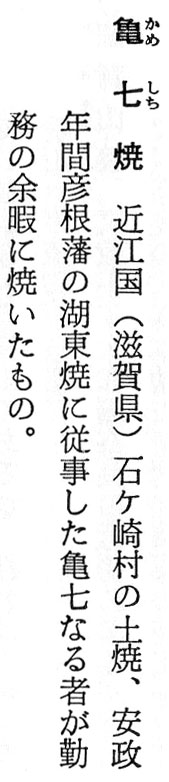 亀七焼　近江国（滋賀県）石ケ崎村の土焼、安政
年間彦根藩の湖東焼に従事した亀七なる者が勤
務の余暇に焼いたもの。
かめ　しち